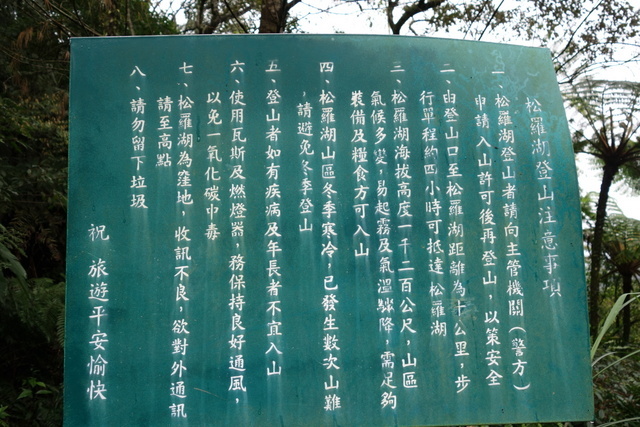 松羅湖登山注意事項
一、松羅湖登山者請向主管機關（警方）
申請入山許可後再登山，以策安全
二、由登山口至松羅湖距離為十公里，步
行單程約四小時可抵達松羅湖
三、松羅湖海拔高度一千二百公尺，山區
氣候多變，易起霧及氣溫驟降，需足夠
裝備及糧食方可入山
四、松羅湖山區冬季寒冷，已發生數次山難
，請避免冬季登山
五、登山者如有疾病及年長者不宜入山
六、使用瓦斯及燃燈器，務保持良好通風，
以免一氧化碳中毒
七、松羅湖為窪地，收訊不良，欲對外通訊
請至高點
八、請勿留下垃圾
祝 旅遊平安愉快